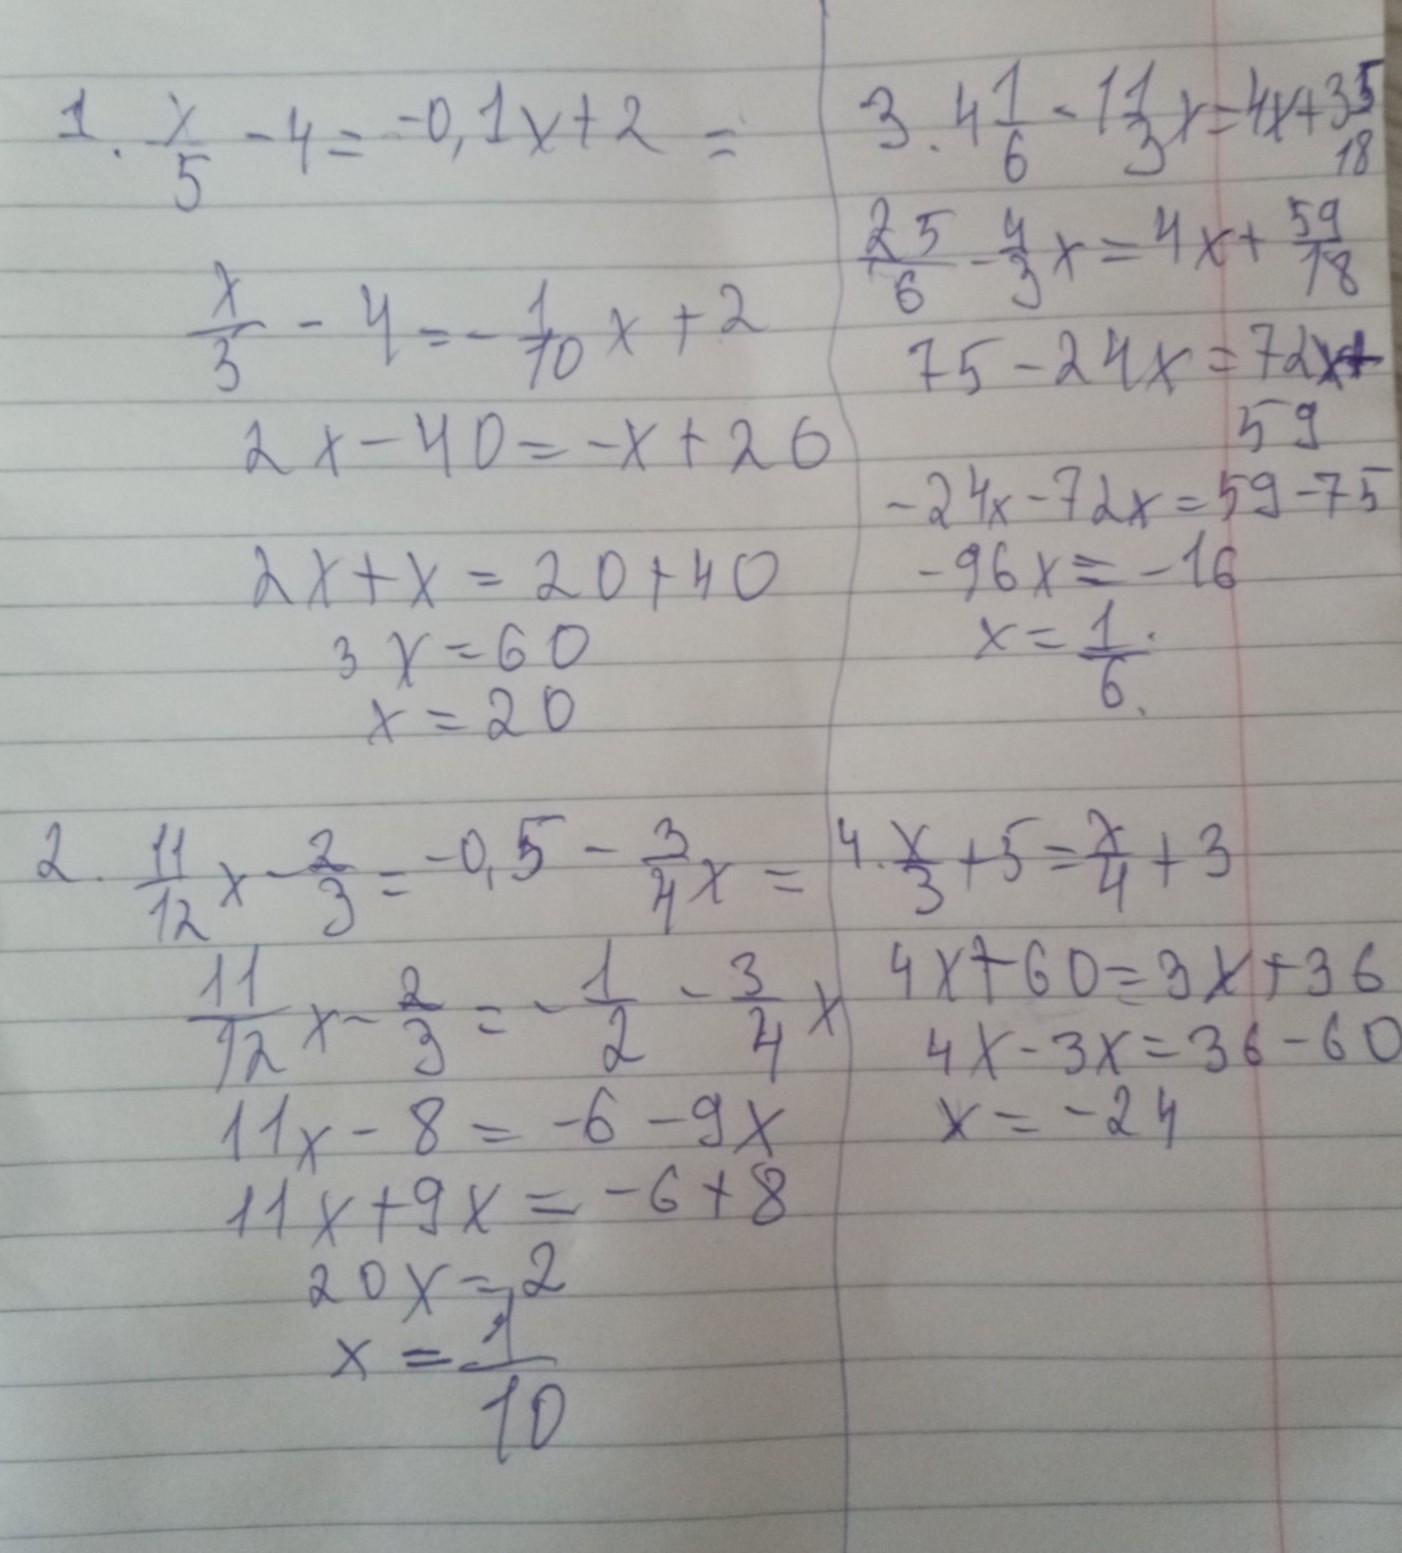 1. x/5 - 4 = -0,1x + 2 =
x/3 - 4 = -1/10 x + 2
2x - 40 = -x + 26
2x + x = 20 + 40
3x = 60
x = 20
2. 11/12 x - 2/3 = -0,5 - 3/4 x =
11/12 x - 2/3 = -1/2 - 3/4 x
11x - 8 = -6 - 9x
11x + 9x = -6 + 8
20x = 2
x = 1/10
3. 4 1/6 - 1 1/3 x = 4x + 3 5/18
25/6 - 4/3 x = 4x + 59/18
75 - 24x = 72x +
59
-24x - 72x = 59 - 75
-96x = -16
x = 1/6.
4. x/3 + 5 = x/4 + 3
4x + 60 = 3x + 36
4x - 3x = 36 - 60
x = -24